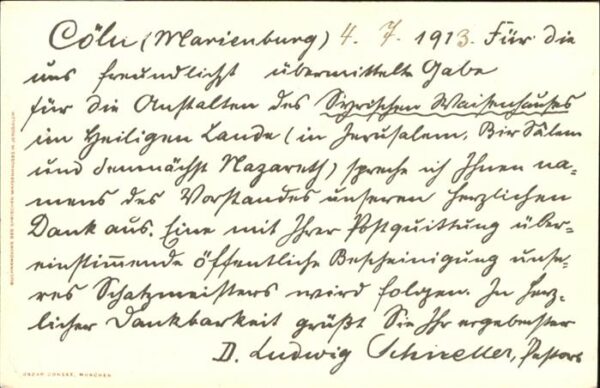 Cöln (Marienburg) 4. 7. 1913. Für die
uns freundlichst übermittelte Gabe
für die Anstalten des Syrischen Waisenhauses
im Heiligen Lande (in Jerusalem, Bir Sâlem
und demnächst Nazareth) spreche ich Ihnen na-
mens des Vorstandes unseren herzlichen
Dank aus. Eine mit Ihrer Postquittung über-
einstimmende öffentliche Bescheinigung unse-
res Schatzmeisters wird folgen. In herz-
licher Dankbarkeit grüßt Sie Ihr ergebenster
D. Ludwig Schneller, Pastor
OSCAR CONSÉE, MÜNCHEN